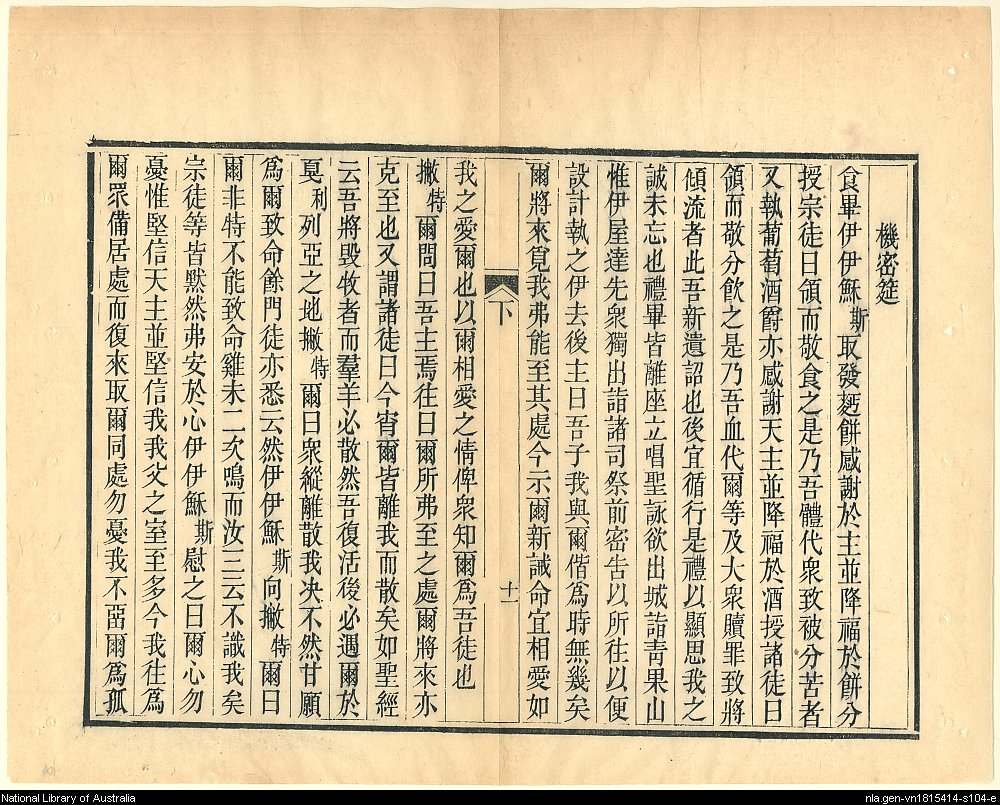 機密筵
食畢伊伊穌斯取發麪餅感謝於主並降福於餅分
授宗徒曰領而敬食之是乃吾體代衆致被分苦者
又執葡萄酒爵亦感謝天主並降福於酒授諸徒曰
領而敬分飲之是乃吾血代爾等及大衆贖罪致將
傾流者此吾新遺詔也後宜循行是禮以顯思我之
誠未忘也禮畢皆離座立唱聖詠欲出城詣青果山
惟伊屋達先衆獨出詣諸司祭前密告以所往以便
設計執之伊去後主曰吾子我與爾偕爲時無幾矣
爾將來覓我弗能至其處今示爾新誡命宜相愛如
下
十一
我之愛爾也以爾相愛之情俾衆知爾爲吾徒也
撇特爾問曰吾主焉往曰爾所弗至之處爾將來亦
克至也又謂諸徒曰今宵爾皆離我而散矣如聖經
云吾將毀牧者而羣羊必散然吾復活後必遇爾於
戛利列亞之地撇特爾曰衆縱離散我决不然甘願
爲爾致命餘門徒亦悉云然伊伊穌斯向撇特爾曰
爾非特不能致命雞未二次鳴而汝三云不識我矣
宗徒等皆默然弗安於心伊伊穌斯慰之曰爾心勿
憂惟堅信天主並堅信我我父之室至多今我往爲
爾眾備居處而復來取爾同處勿憂我不畱爾爲孤
National Library of Australia
nla.gen-vn1815414-s104-e